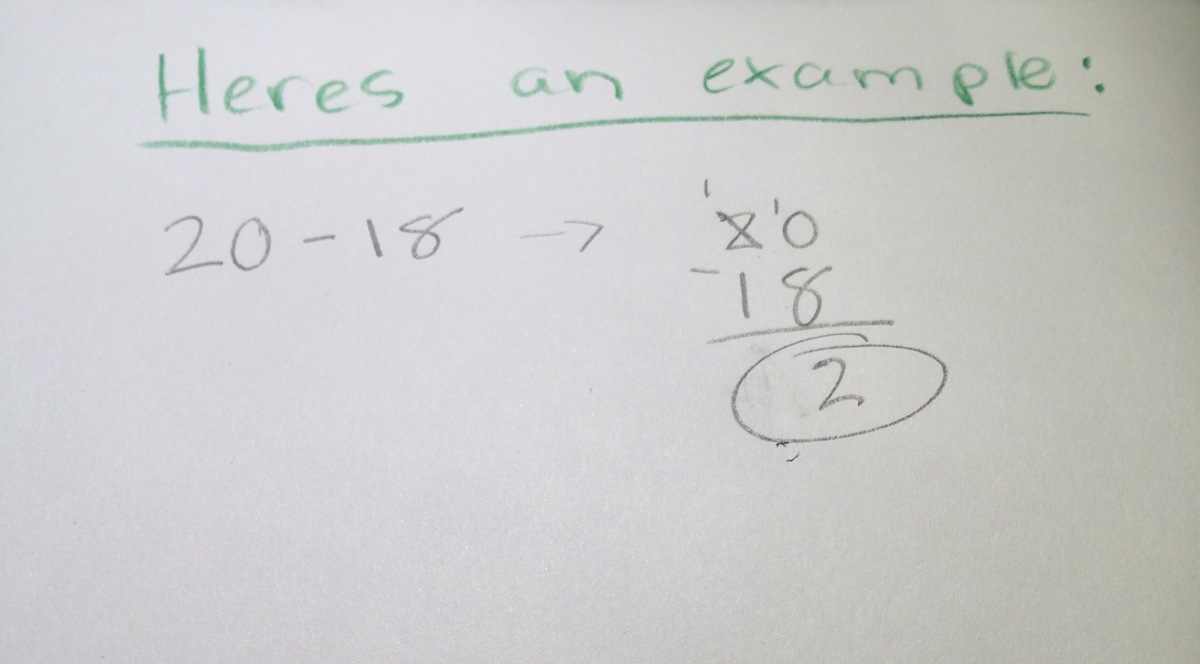 Heres an example:
20-18 → 
1
2 10
-18
2